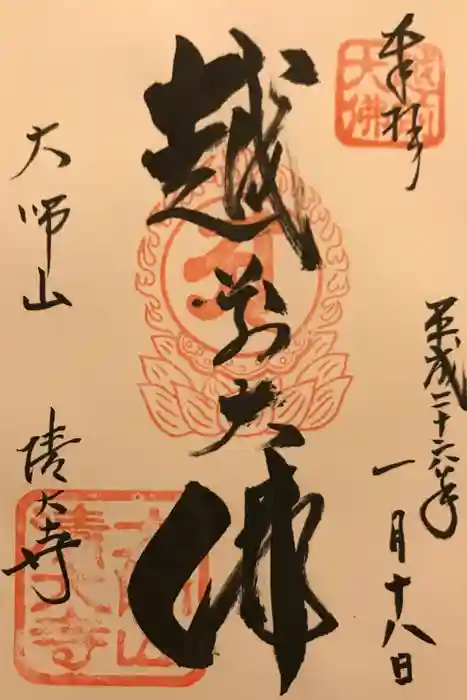 奉拝
越前
大佛
平成二十六年
一月十八日
越前大佛
大師山
清大寺
大師山
清大寺